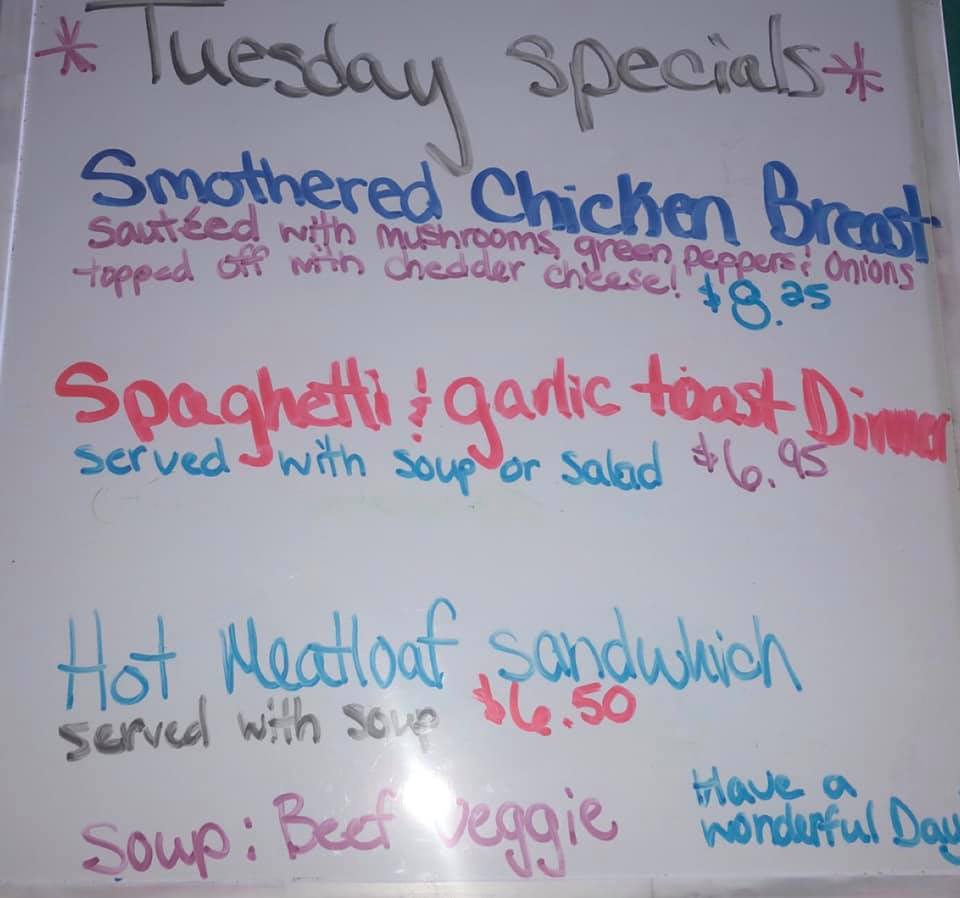 * Tuesday specials *
Smothered Chicken Breast
Sautéed with mushrooms, green peppers & onions
topped off with chedder cheese! $8.25
Spaghetti & garlic toast Dinner
served with soup or salad $6.95
Hot Meatloaf sandwhich
served with soup $6.50
Soup: Beef veggie
Have a
wonderful Day